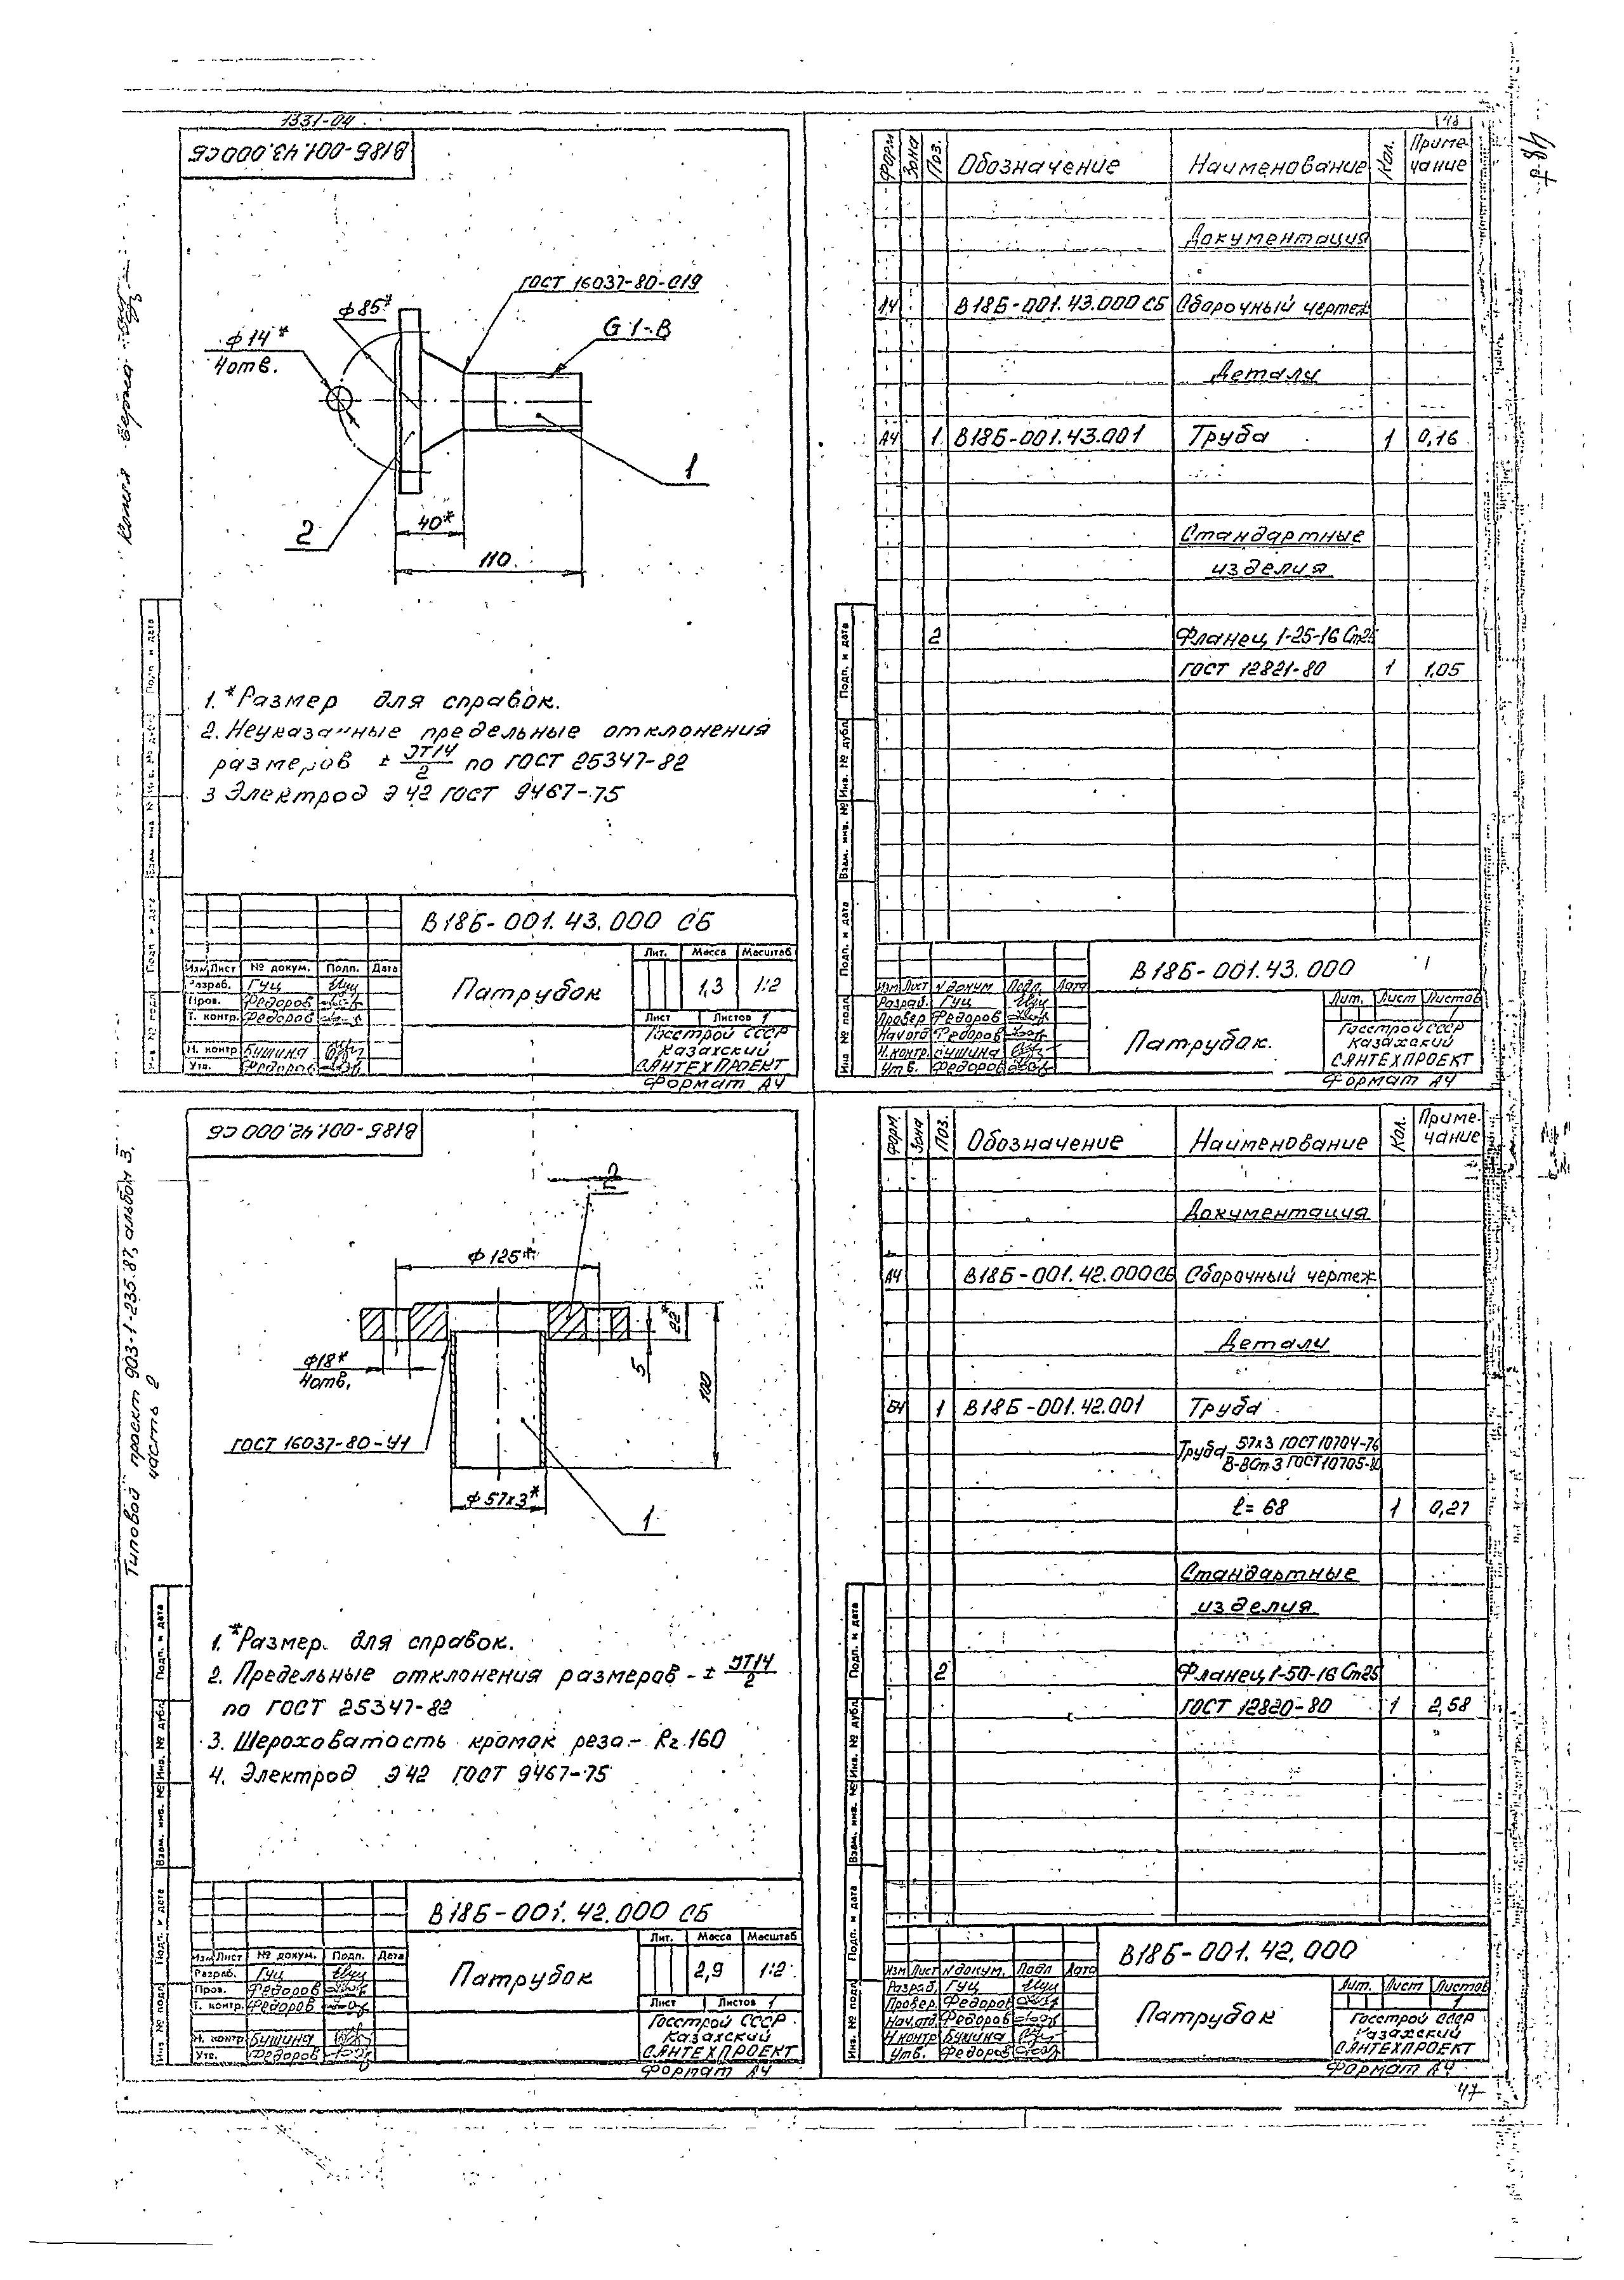 1331-04
В18Б-001.43.000 СБ
ГОСТ 16037-80-С19
ф85*
G 1-В
ф14*
4отв.
1
2
40*
110
1. *Размер для справок.
2. Неуказанные предельные отклонения
размеров ± JT14/2 по ГОСТ 25347-82
3 Электрод Э42 ГОСТ 9467-75
В18Б-001.43.000 СБ
Изм Лист № докум. Подп. Дата
Разраб. Гуц
Пров. Федоров
Т. контр. Федоров
Н. контр Бушина
Утв. Федоров
Патрубок
Лит. Масса Масштаб
1,3 1:2
Лист Листов 1
Госстрой СССР
Казахский
САНТЕХПРОЕКТ
Формат А4
Подп. и дата
Инв. № дубл.
Взам. инв. №
Подп. и дата
Инв № подл
Копия верна
48
Форм Зона Поз. Обозначение Наименование Кол. Приме-
чание
Документация
А4 В18Б-001.43.000 СБ Сборочный чертеж
Детали
А4 1 В18Б-001.43.001 Труба 1 0,16
Стандартные
изделия
2 Фланец 1-25-16 Ст25
ГОСТ 12821-80 1 1,05
Подп. и дата
Инв. № дубл
Взам. инв. №
Подп. и дата
Инв № подл
В18Б-001.43.000
Изм Лист N докум Подп. Дата
Разраб. Гуц
Провер Федоров
Нач отд Федоров
Н.контр. Бушина
Утв. Федоров
Патрубок.
Лит. Лист Листов
1
Госстрой СССР
Казахский
САНТЕХПРОЕКТ
Формат А4
Типовой проект 903-1-235.87, альбом 3.
часть 2
В18Б-001.42.000 СБ
2
ф125*
22*
5
100
ф18*
4отв.
ГОСТ 16037-80-У1
ф57х3*
1
1. *Размер для справок.
2. Предельные отклонения размеров - ± JT14/2
по ГОСТ 25347-82
3. Шероховатость кромок реза - Rz 160
4. Электрод Э42 ГОСТ 9467-75
В18Б-001.42.000 СБ
Изм Лист № докум. Подп. Дата
Разраб. Гуц
Пров. Федоров
Т. контр. Федоров
Н. контр Бушина
Утв. Федоров
Патрубок
Лит. Масса Масштаб
2,9 1:2
Лист Листов 1
Госстрой СССР
Казахский
САНТЕХПРОЕКТ
Формат А4
Подп. и дата
Инв. № дубл
Взам. инв. №
Подп. и дата
Инв № подл
Форм. Зона Поз. Обозначение Наименование Кол. Приме-
чание
Документация
А4 В18Б-001.42.000СБ Сборочный чертеж
Детали
БЧ 1 В18Б-001.42.001 Труба
Труба 57х3 ГОСТ 10704-76
В-ВСт3 ГОСТ 10705-80
ℓ= 68 1 0,27
Стандартные
изделия
2 Фланец 1-50-16 Ст25
ГОСТ 12820-80 1 2,58
Подп. и дата
Инв. № дубл
Взам. инв. №
Подп. и дата
Инв. № подл
В18Б-001.42.000
Изм Лист N докум. Подп Дата
Разраб. Гуц
Провер. Федоров
Нач.отд. Федоров
Н контр Бушина
Утв. Федоров
Патрубок
Лит. Лист Листов
1
Госстрой СССР
Казахский
САНТЕХПРОЕКТ
Формат А4
47